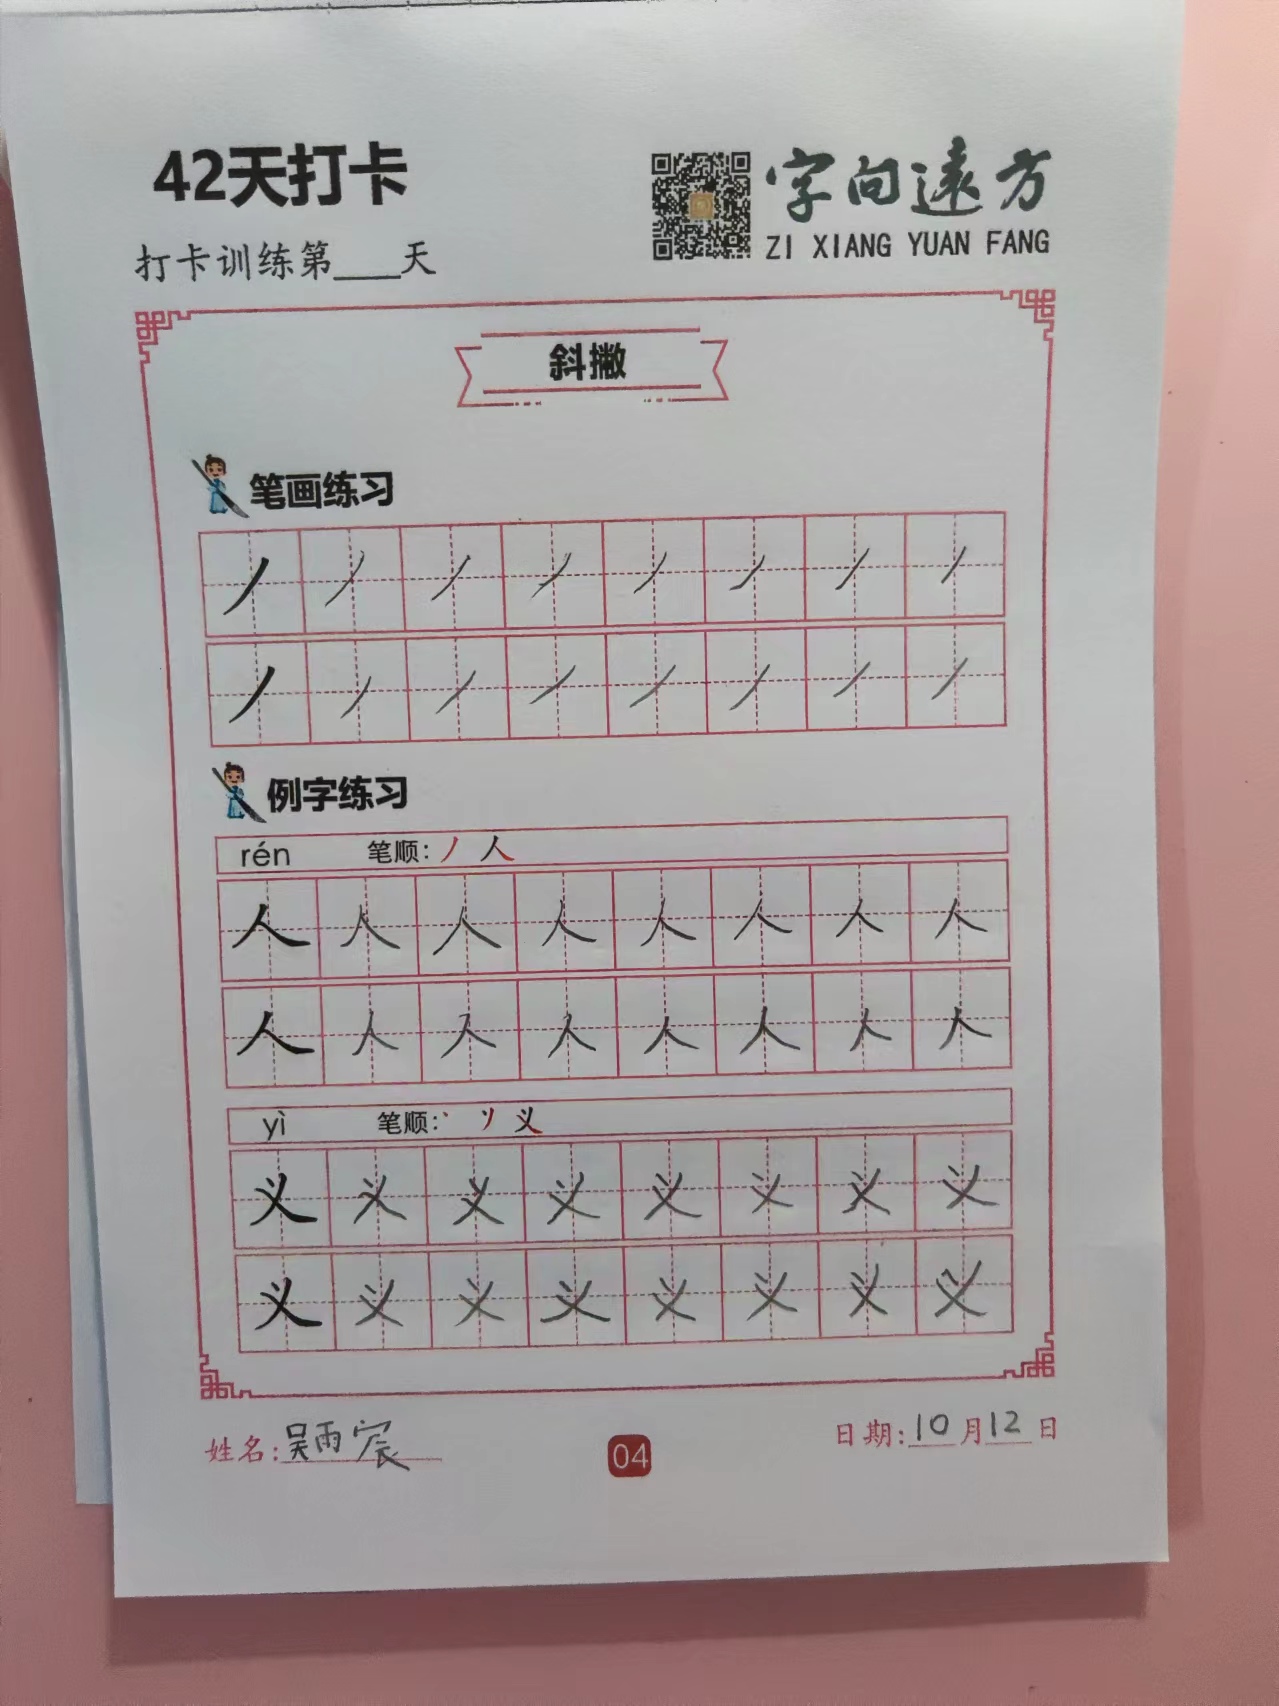 42天打卡
字向遠方
ZI XIANG YUAN FANG
打卡训练第___天
斜撇
笔画练习
丿 丿 丿 丿 丿 丿 丿 丿
丿 丿 丿 丿 丿 丿 丿 丿
例字练习
rén 笔顺: 丿 人
人 人 人 人 人 人 人 人
人 人 人 人 人 人 人 人
yì 笔顺: 丶 丷 义
义 义 义 义 义 义 义 义
义 义 义 义 义 义 义 义
姓名: 吴雨宸
04
日期: 10 月 12 日